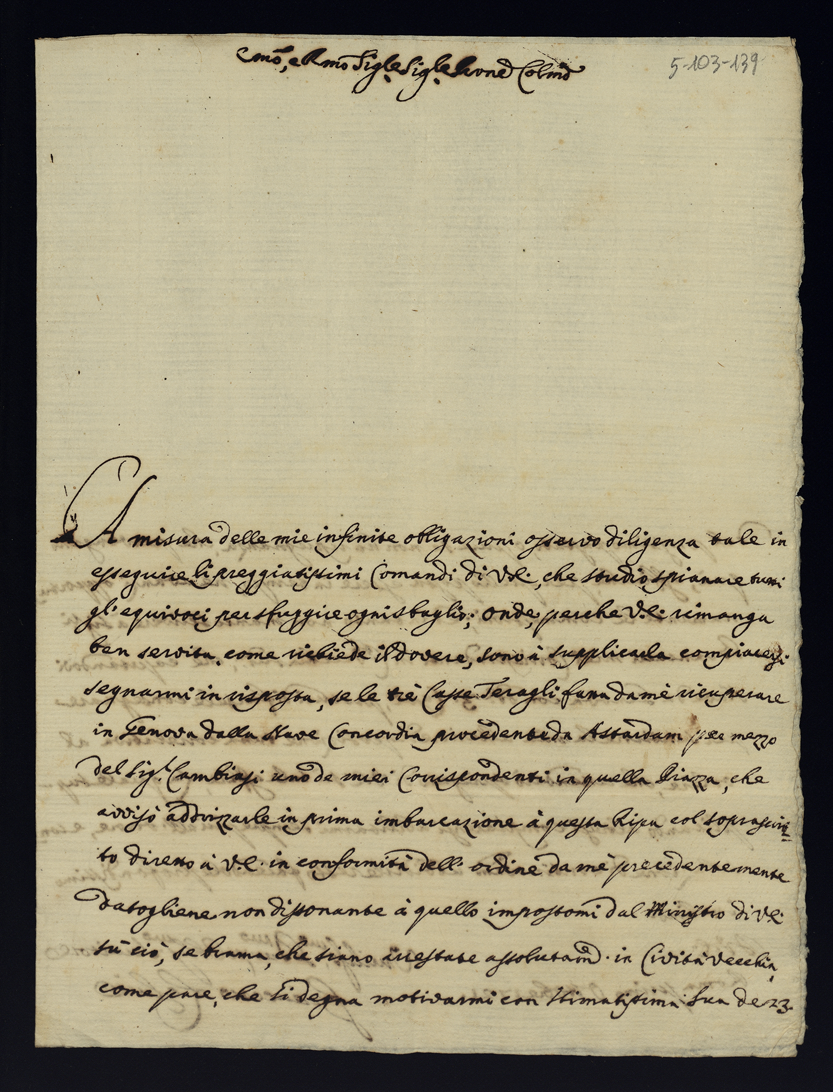 Emo, e Rmo Sigle Sigle Prone Colmo
5-103-139
A misura delle mie infinite obligazioni osservo diligenza tale in
esseguire li preggiatissimi Comandi di V.E:, che studio spianare tutti
gl'equivoci per sfuggire ogni sbaglio; onde, perche V.E: rimanga
ben servita, come richiede il dovere, sono à supplicarla compiacersi
segnarmi in risposta, se le trè Casse Teragli, fatte da mè ricuperare
in Genova dalla Nave Concordia procedente da Astardam per mezzo
del Sig.r Cambiasi uno de miei Corrispondenti in quella Piazza, che
avvisò addrizzarle in prima imbarcazione à questa Ripa col soprascrit=
to diretto à V.E. in conformità dell'ordine da mè precedentemente
datogliene non dissonante à quello impostomi dal Ministro di V.E:
sù ciò, se brama, che siano arrestate assolutam.e in Cività Vecchia,
come pare, che si degna motivarmi con stimatissima Sua de 23.